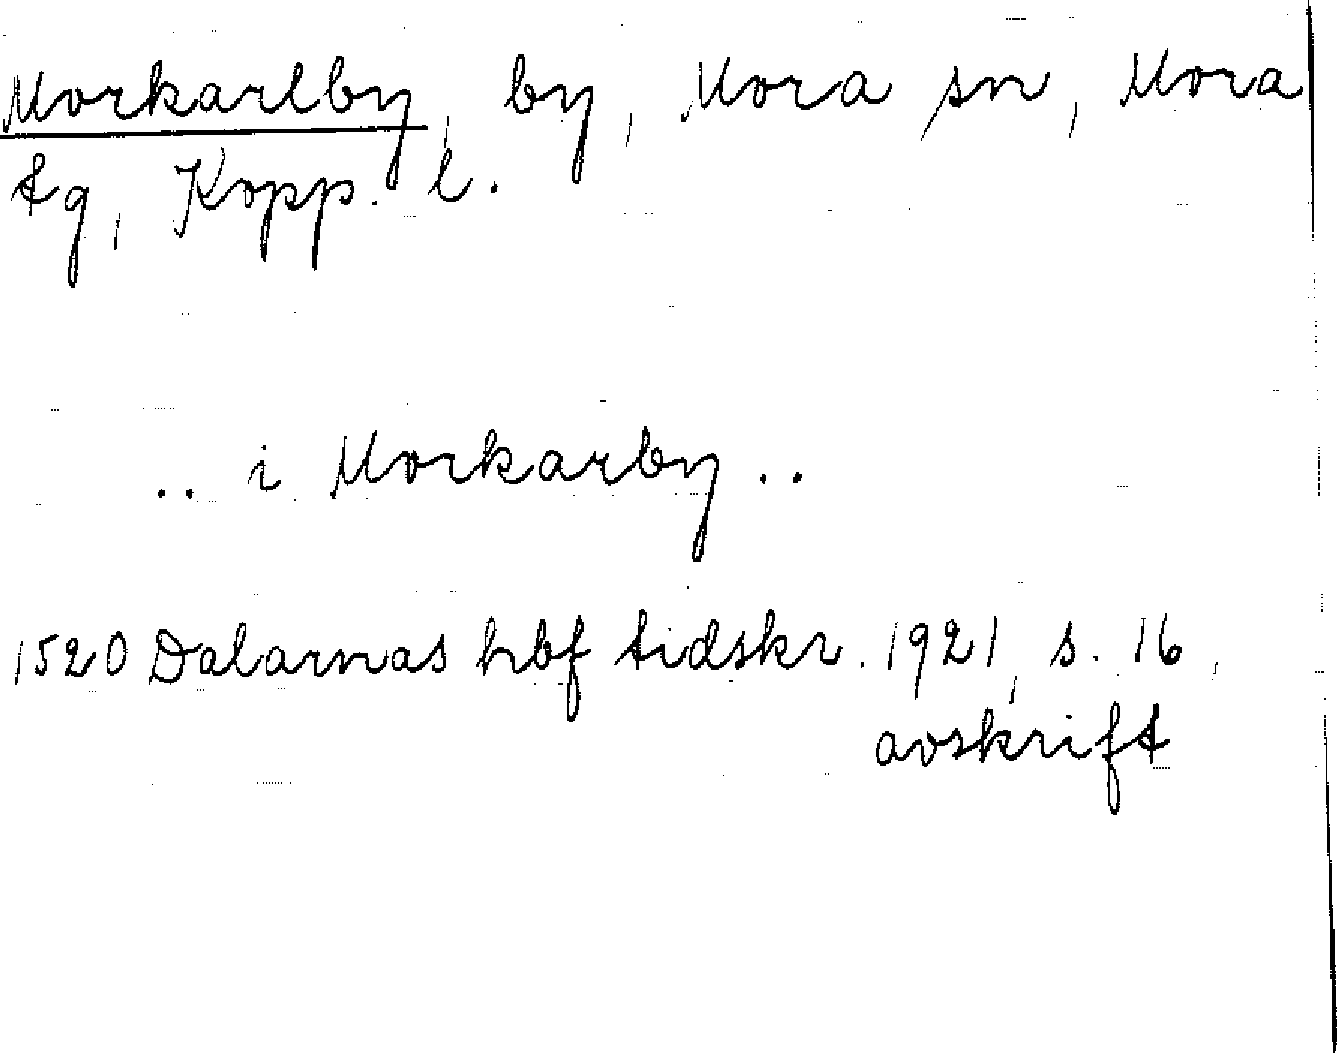 Morkarlby, by, Mora sn, Mora
tg, Kopp. l.
.. i Morkarby ..
1520 Dalarnas hbf tidskr. 1921, s. 16,
avskrift